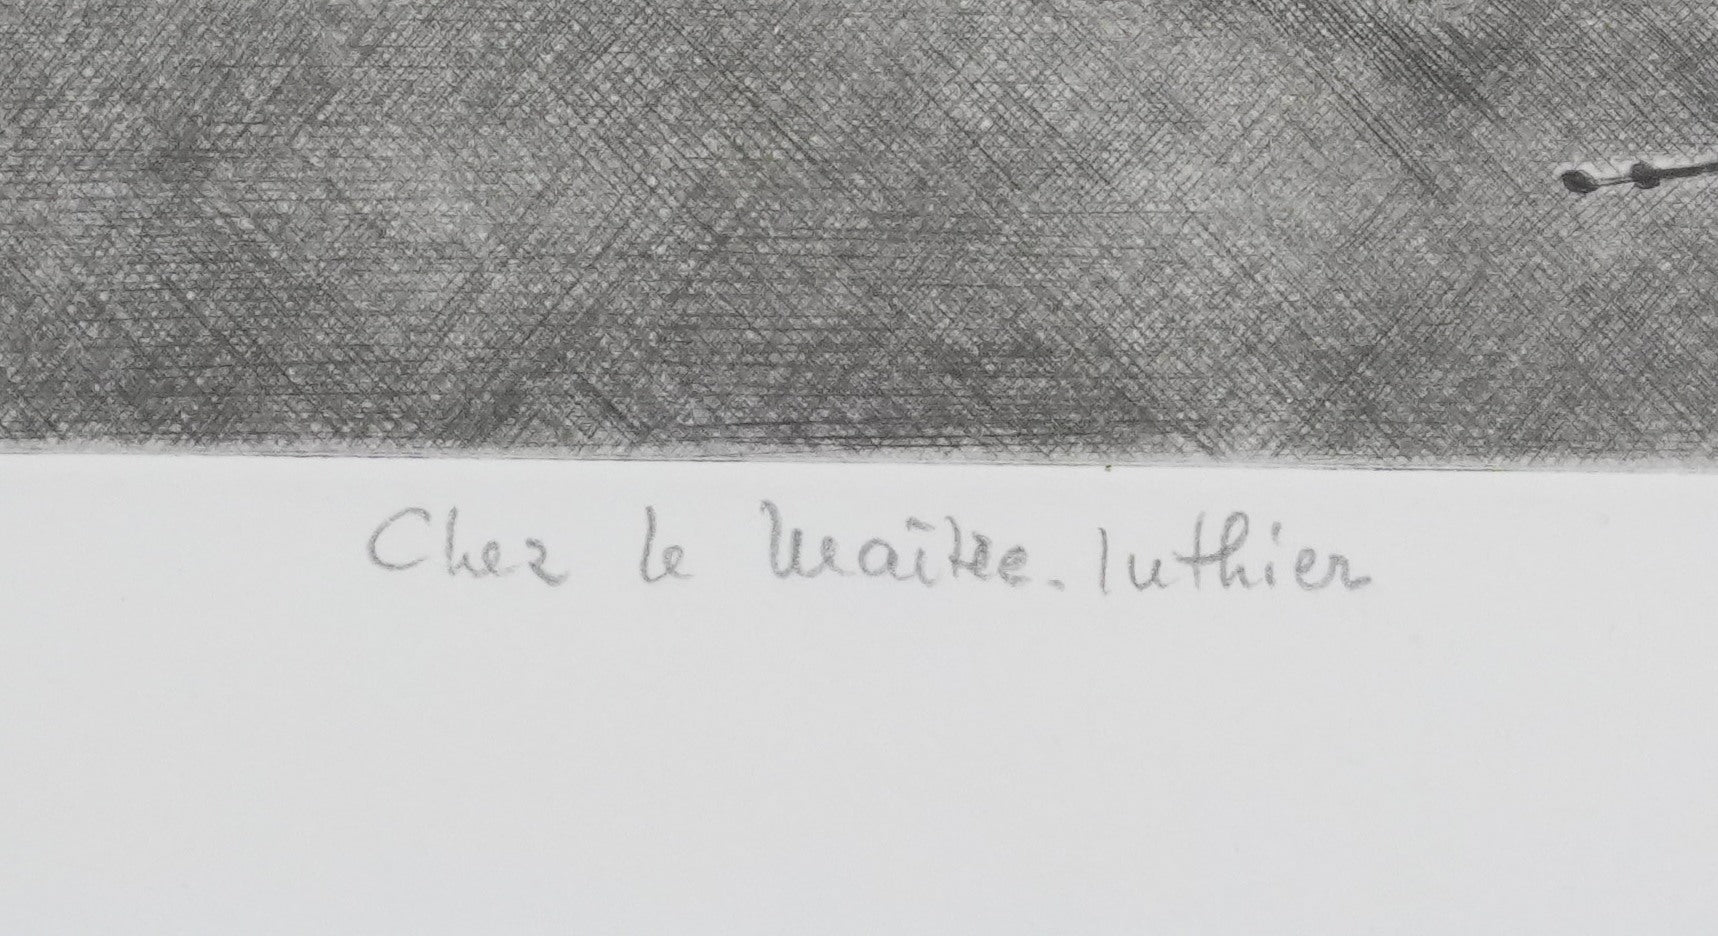 Chez le Maître-luthier